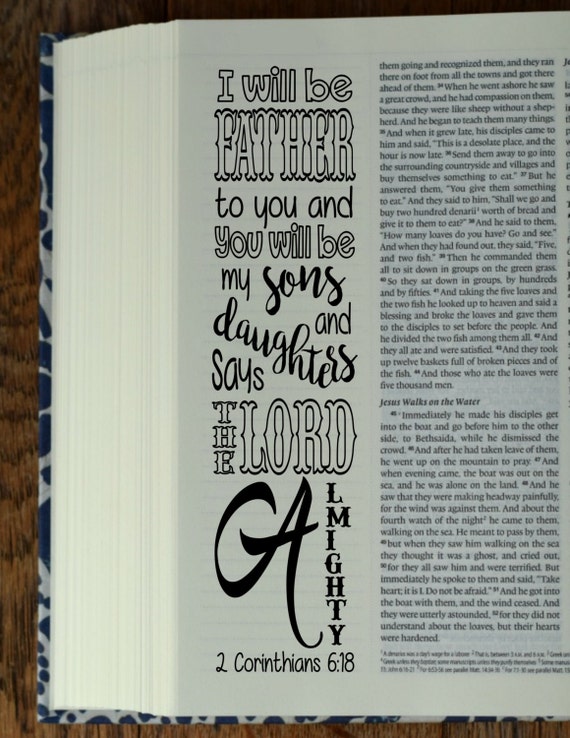 I will be
FATHER
to you and
you will be
my sons
and
daughters
says
THE LORD
ALMIGHTY
2 Corinthians 6:18
them going and recognized them, and they ran
there on foot from all the towns and got there
ahead of them. 34 When he went ashore he saw
a great crowd, and he had compassion on them,
because they were like sheep without a shep-
herd. And he began to teach them many things.
35 And when it grew late, his disciples came to
him and said, "This is a desolate place, and the
hour is now late. 36 Send them away to go into
the surrounding countryside and villages and
buy themselves something to eat." 37 But he
answered them, "You give them something
to eat." And they said to him, "Shall we go and
buy two hundred denarii¹ worth of bread and
give it to them to eat?" 38 And he said to them,
"How many loaves do you have? Go and see."
And when they had found out, they said, "Five,
and two fish." 39 Then he commanded them
all to sit down in groups on the green grass.
40 So they sat down in groups, by hundreds
and by fifties. 41 And taking the five loaves and
the two fish he looked up to heaven and said a
blessing and broke the loaves and gave them
to the disciples to set before the people. And
he divided the two fish among them all. 42 And
they all ate and were satisfied. 43 And they took
up twelve baskets full of broken pieces and of
the fish. 44 And those who ate the loaves were
five thousand men.
Jesus Walks on the Water
45 Immediately he made his disciples get
into the boat and go before him to the other
side, to Bethsaida, while he dismissed the
crowd. 46 And after he had taken leave of them,
he went up on the mountain to pray. 47 And
when evening came, the boat was out on the
sea, and he was alone on the land. 48 And he
saw that they were making headway painfully,
for the wind was against them. And about the
fourth watch of the night² he came to them,
walking on the sea. He meant to pass by them,
49 but when they saw him walking on the sea
they thought it was a ghost, and cried out,
50 for they all saw him and were terrified. But
immediately he spoke to them and said, "Take
heart; it is I. Do not be afraid." 51 And he got into
the boat with them, and the wind ceased. And
they were utterly astounded, 52 for they did not
understand about the loaves, but their hearts
were hardened.